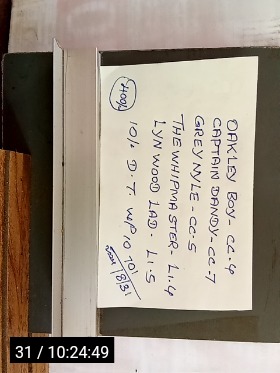 OAKLEY BOY- CC.4
CAPTAIN DANDY- CC-7
GREY NYLE- CC-5
THE WHIPMASTER- L1.4
LYNWOOD LAD- L1-5
10% D.T. W/P 10 701
31 / 10:24:49